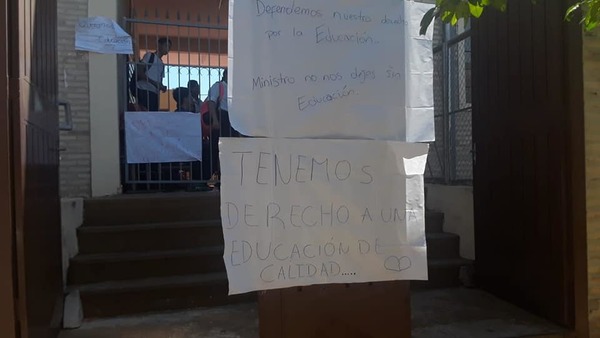 Dependemos nuestro
por la Educación..
Ministro no nos dejes sin
Educación
TENEMOS
DERECHO A UNA
EDUCACIÓN DE
CALIDAD.....